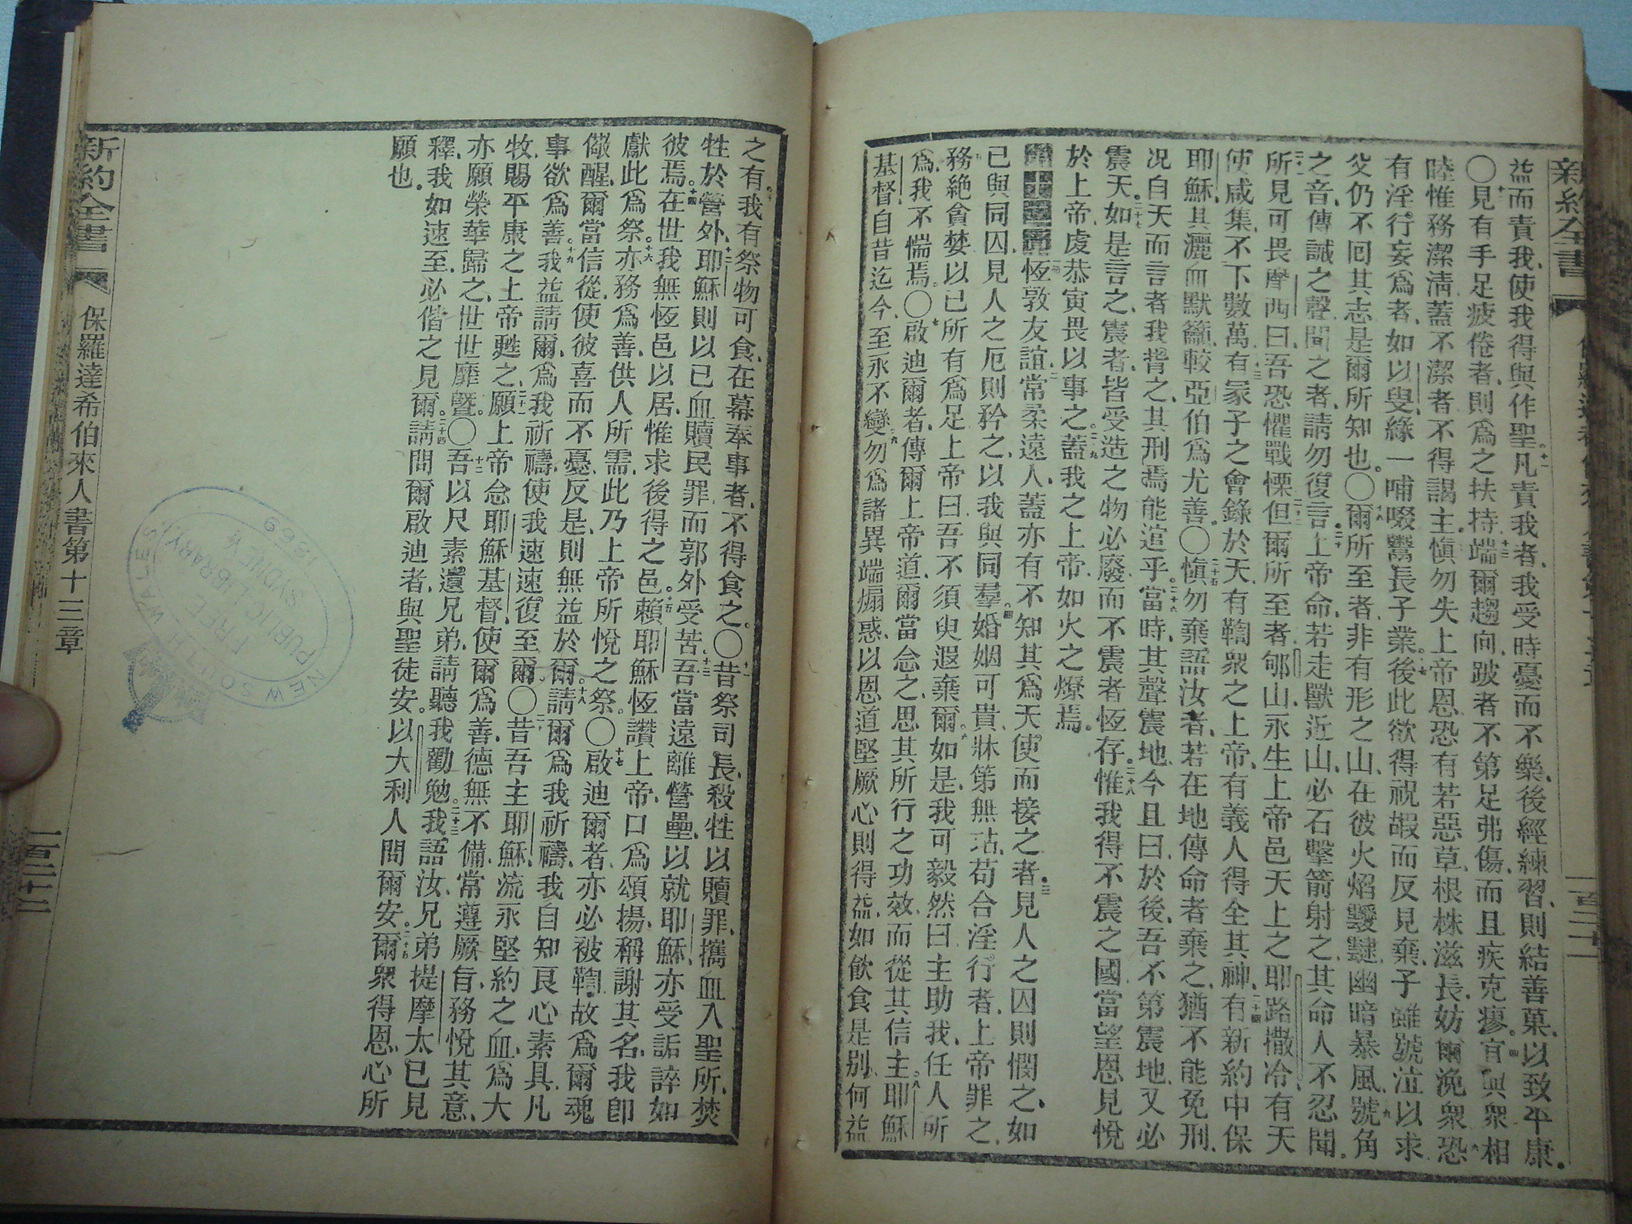 益而責我使我得與作聖凡責我者我受時憂而不樂後經練習則結善菓以致平康
〇見有手足疲倦者則爲之扶持端爾趨向跛者不第足弗傷而且疾克瘳宜與衆相
睦惟務潔清蓋不潔者不得謁主愼勿失上帝恩恐有若惡草根株滋長妨爾浼衆恐
有淫行妄爲者如以叟緣一哺啜鬻長子業後此欲得祝嘏而反見棄子雖號泣以求
父仍不回其志是爾所知也〇爾所至者非有形之山在彼火焰靉靆幽暗暴風號角
之音傳誡之聲聞之者請勿復言上帝命若走獸近山必石擊箭射之其命人不忍聞
所見可畏摩西曰吾恐懼戰慄但爾所至者郇山永生上帝邑天上之耶路撒冷有天
使咸集不下數萬有冢子之會錄於天有鞫衆之上帝有義人得全其神有新約中保
耶穌其灑血默籲較亞伯爲尤善〇愼勿棄語汝者若在地傳命者棄之猶不能免刑
況自天而言者我揹之其刑焉能逭乎當時其聲震地今且曰於後吾不第震地又必
震天如是言之震者皆受造之物必廢而不震者恆存惟我得不震之國當望恩見悅
於上帝虔恭寅畏以事之蓋我之上帝如火之燎焉
恆敦友誼常柔遠人蓋亦有不知其爲天使而接之者見人之囚則憫之如
已與同囚見人之厄則矜之以我與同羣婚姻可貴牀第無玷苟合淫行者上帝罪之
務絶貪婪以已所有爲足上帝曰吾不須臾遐棄爾如是我可毅然曰主助我任人所
爲我不惴焉〇啟迪爾者傳爾上帝道爾當念之思其所行之功效而從其信主耶穌
基督自昔迄今至永不變勿爲諸異端煽惑以恩道堅厥心則得益如飲食是别何益
新約全書
保羅達希伯來人書第十三章
之有我有祭物可食在幕奉事者不得食之〇昔祭司長殺牲以贖罪攜血入聖所焚
牲於營外耶穌則以已血贖民罪而郭外受苦吾當遠離營壘以就耶穌亦受詬誶如
彼焉在世我無恆邑以居惟求後得之邑賴耶穌恆讚上帝口爲頌揚稱謝其名我卽
獻此爲祭亦務爲善供人所需此乃上帝所悅之祭〇啟迪爾者亦必被鞫故爲爾魂
儆醒爾當信從使彼喜而不憂反是則無益於爾請爾爲我祈禱我自知良心素具凡
事欲爲善我益請爾爲我祈禱使我速速復至爾〇昔吾主耶穌流永堅約之血爲大
牧賜平康之上帝甦之願上帝念耶穌基督使爾爲善德無不備常遵厥旨務悅其意
亦願榮華歸之世世靡曁〇吾以尺素遺兄弟請聽我勸勉我語汝兄弟提摩太已見
釋我如速至必偕之見爾請問爾啟迪者與聖徒安以大利人問爾安爾衆得恩心所
願也
新約全書
保羅達希伯來人書第十三章
NEW SOUTH WALES
FREE PUBLIC LIBRARY, SYDNEY
1869